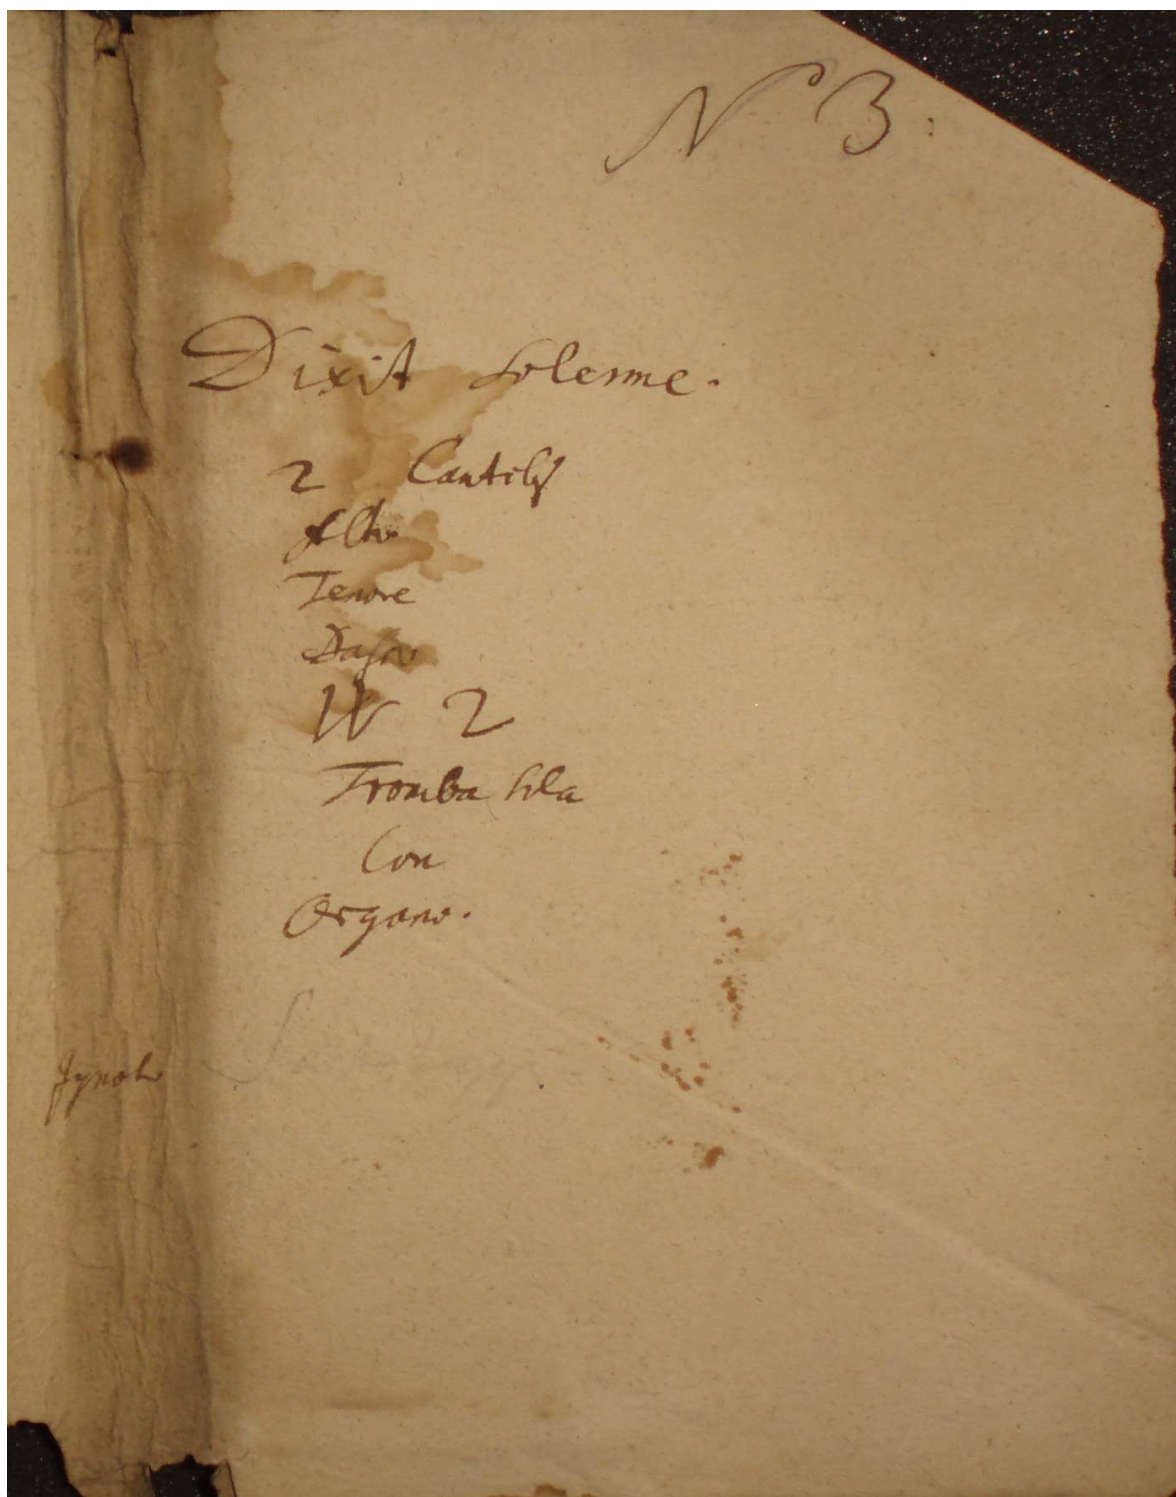 N 3.
Dixit Solenne.
2 Cantibus
Alto
Tenore
Basso
VV 2
Tromba Sola
Con
Organo.